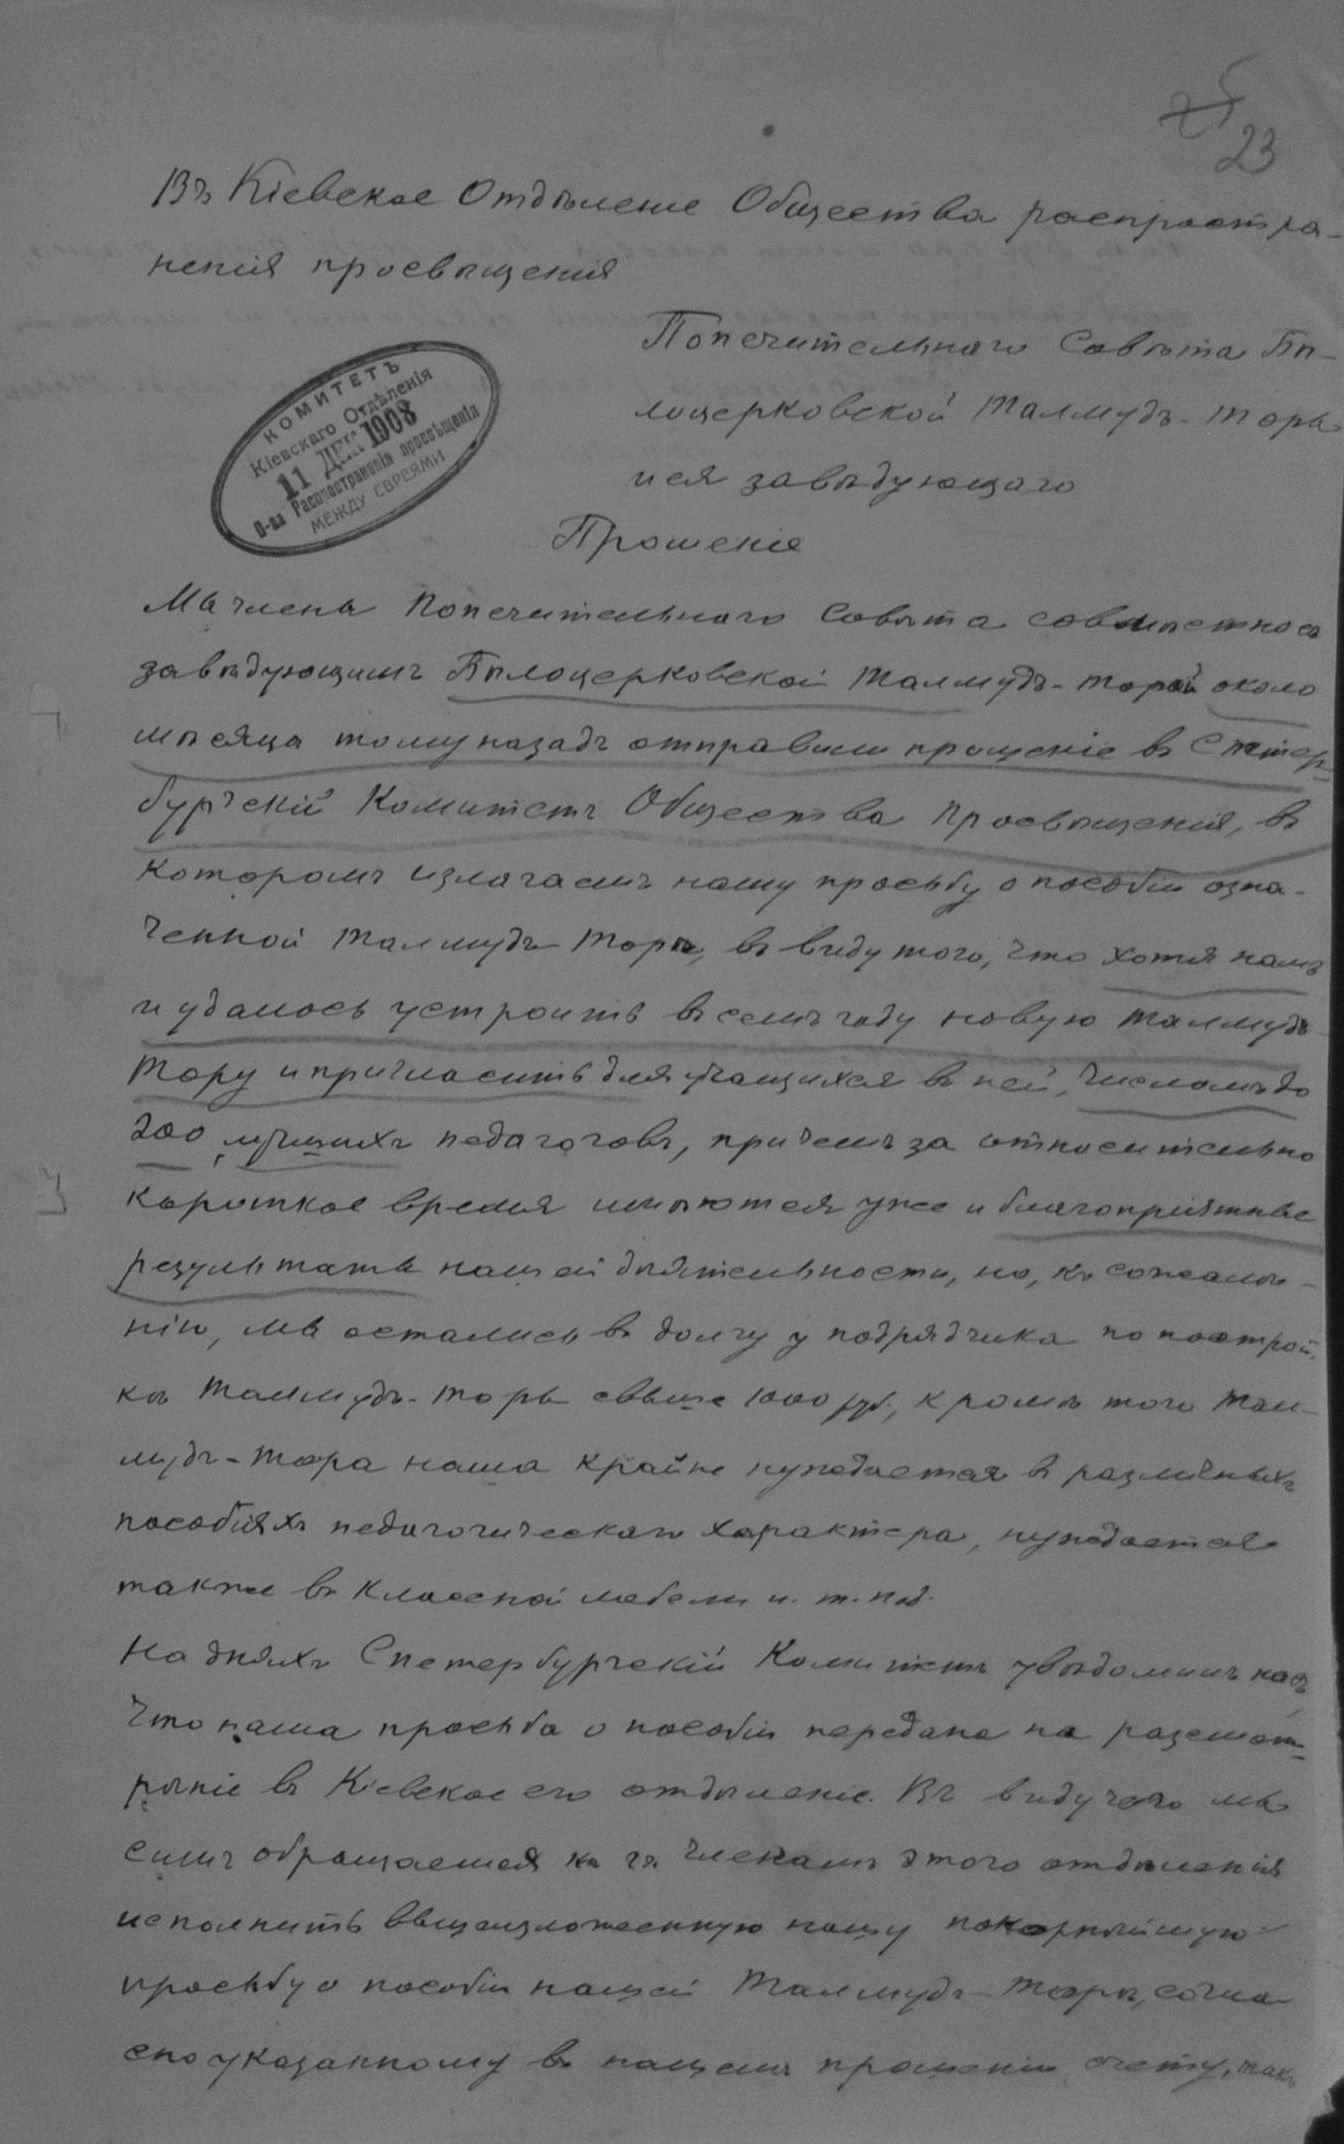 25
23
Въ Кіевское Отдѣленіе Общества распростра-
ненія просвѣщенія
КОМИТЕТЪ
Кіевскаго Отдѣленія
11 ДЕК 1908
О-ва Распространенія просвѣщенія
МЕЖДУ ЕВРЕЯМИ
Попечительнаго Совѣта Бѣ-
лоцерковской Талмудъ-Торы
и ея завѣдующаго
Прошеніе
Мы члены Попечительнаго Совѣта совмѣстно съ
завѣдующимъ Бѣлоцерковской Талмудъ-Торой около
мѣсяца тому назадъ отправили прошеніе въ Спетер-
бургскій Комитетъ Общества Просвѣщенія, въ
которомъ излагаемъ нашу просьбу о пособіи озна-
ченной Талмудъ Торѣ, въ виду того, что хотя намъ
и удалось устроить въ семъ году новую Талмудъ-
Тору и пригласить для учащихся въ ней, числомъ до
200, лучшихъ педагоговъ, причемъ за относительно
короткое время имѣются уже и благопріятные
результаты нашей дѣятельности, но, къ сожалѣ-
нію, мы остались въ долгу у подрядчика по построй-
кѣ Талмудъ-Торы свыше 1000 руб., кромѣ того Тал-
мудъ-Тора наша крайне нуждается въ различныхъ
пособіяхъ педагогическаго характера, нуждается
также въ классной мебели и. т. под.
На дняхъ Спетербургскій Комитетъ увѣдомилъ насъ
что наша просьба о пособіи передана на разсмот-
рѣніе въ Кіевское его отдѣленіе. Въ виду чего мы
симъ обращаемся къ гг. членамъ этого отдѣленія
исполнить вышеизложенную нашу покорнѣйшую
просьбу о пособіи нашей Талмудъ-Торѣ, согла-
сно указанному въ нашемъ прошеніи счету, такъ